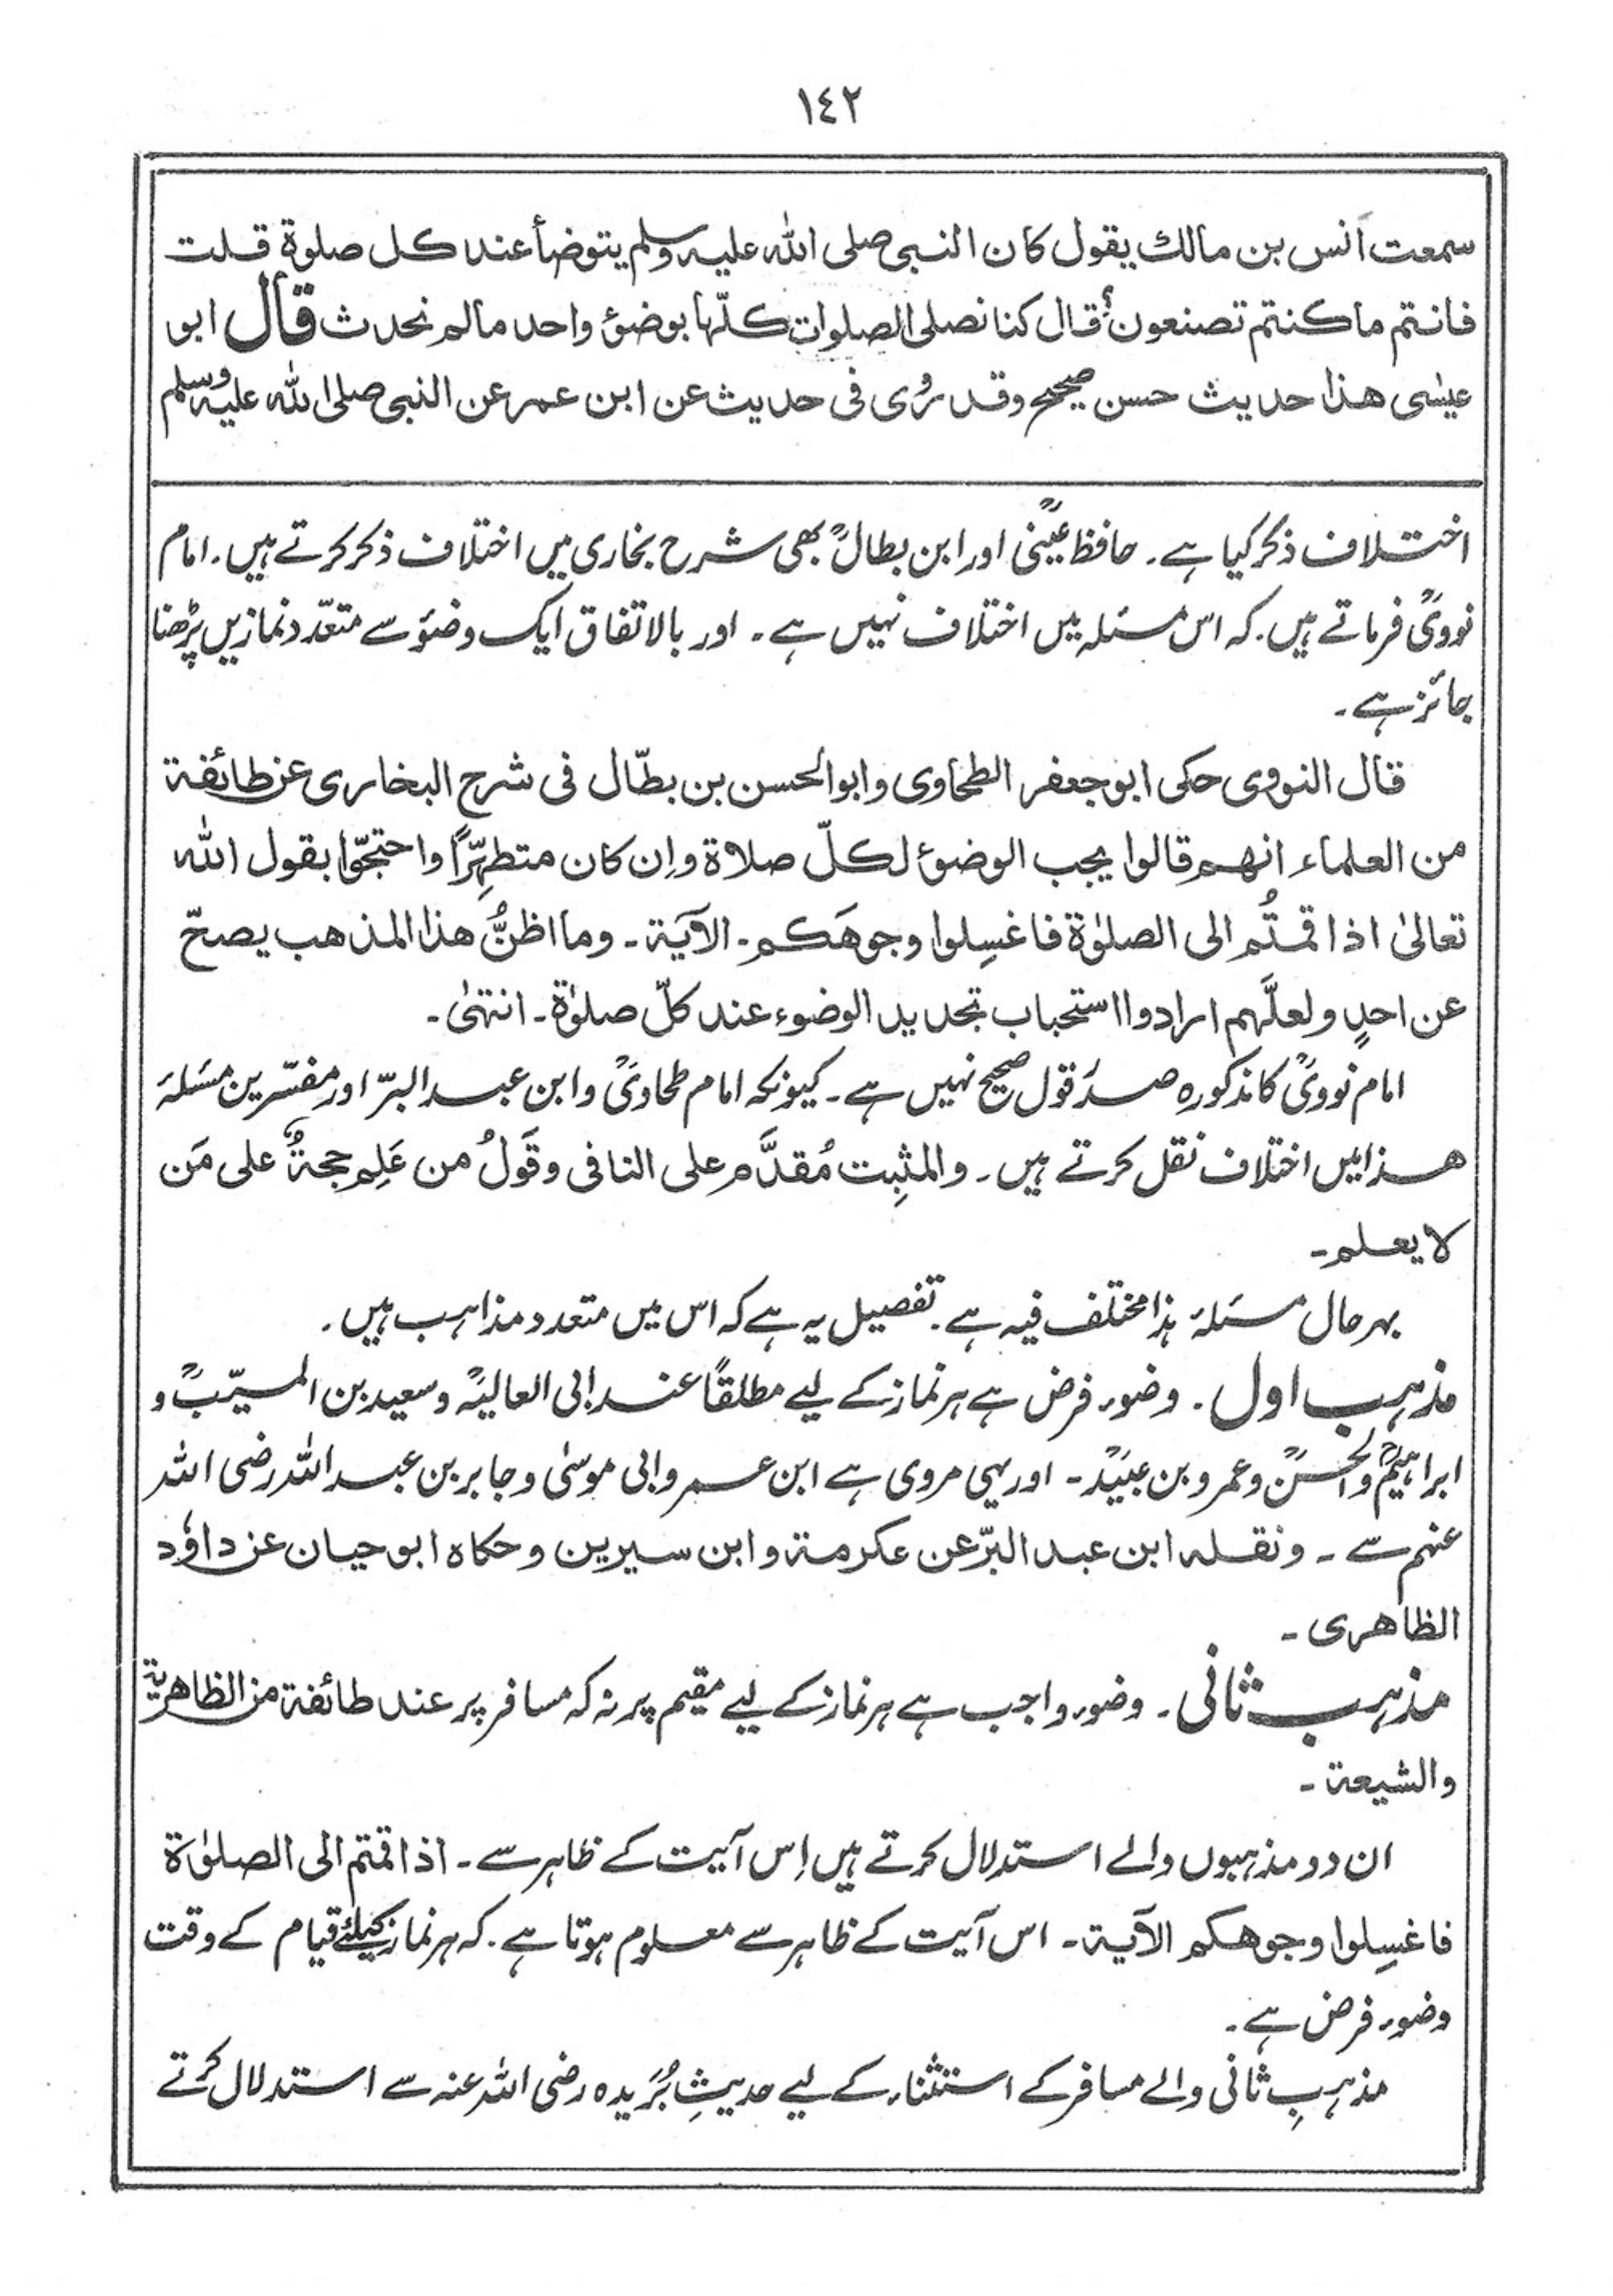 ١٤٢
سمعت انس بن مالك يقول كان النبى صلى الله عليه وسلم يتوضأ عند كل صلوة قلت
فانتم ما كنتم تصنعون؟ قال كنا نصلى الصلوات كلّها بوضوء واحد مالم نحدث قال ابو
عيسٰى هذا حديث حسن صحيح وقد رُوى فى حديث عن ابن عمر عن النبى صلى الله عليه وسلم
اختلاف ذکر کیا ہے۔ حافظ عینیؒ اور ابن بطالؒ بھی شرح بخاری میں اختلاف ذکر کرتے ہیں۔ امام
نوویؒ فرماتے ہیں۔ کہ اس مسئلہ میں اختلاف نہیں ہے۔ اور بالاتفاق ایک وضوٴ سے متعدّد نمازیں پڑھنا
جائز ہے۔
قال النووى حكى ابو جعفر الطحاوى وابو الحسن بن بطّال فى شرح البخارى عن طائفة
من العلماء انهم قالوا يجب الوضوء لكلّ صلاة وإن كان متطهِّرًا واحتجّوا بقول الله
تعالىٰ اذا قمتُم الى الصلوٰة فاغسِلوا وجوهَكم۔ الآية۔ وما اظنُّ هذا المذهب يصحّ
عن احدٍ ولعلَّهم ارادوا استحباب تجديد الوضوء عند كلّ صلوٰة۔ انتهىٰ۔
امام نوویؒ کا مذکورہ صدر قول صحیح نہیں ہے۔ کیونکہ امام طحاویؒ وابن عبد البرّ اور مفسّرین مسئلۂ
ھذا میں اختلاف نقل کرتے ہیں۔ والمثبِت مُقدَّم على النافى وقَولُ من عَلِم حجةٌ على مَن
لا يعلم۔
بہرحال مسئلۂ ہذا مختلف فیہ ہے۔ تفصیل یہ ہے کہ اس میں متعدد مذاہب ہیں۔
مذہب اول۔ وضوء فرض ہے ہر نماز کے لیے مطلقًا عند ابی العالیہؒ وسعید بن المسیّبؒ و
ابراہیمؒ والحسنؒ وعمرو بن عبیدؒ۔ اور یہی مروی ہے ابن عمر وابی موسٰی وجابر بن عبد اللہ رضی اللہ
عنہم سے۔ ونقله ابن عبد البرّ عن عكرمة وابن سيرين وحكاه ابو حيان عن داوٗد
الظاهرى۔
مذہب ثانی۔ وضوء واجب ہے ہر نماز کے لیے مقیم پر نہ کہ مسافر پر عند طائفة من الظاهرية
والشيعة۔
ان دو مذہبوں والے استدلال کرتے ہیں اِس آیت کے ظاہر سے۔ اذا قمتم الى الصلوٰة
فاغسِلوا وجوهكم الآية۔ اس آیت کے ظاہر سے معلوم ہوتا ہے۔ کہ ہر نماز کیلئے قیام کے وقت
وضوء فرض ہے۔
مذہبِ ثانی والے مسافر کے استثناء کے لیے حدیثِ بُرَیدہ رضی اللہ عنہ سے استدلال کرتے